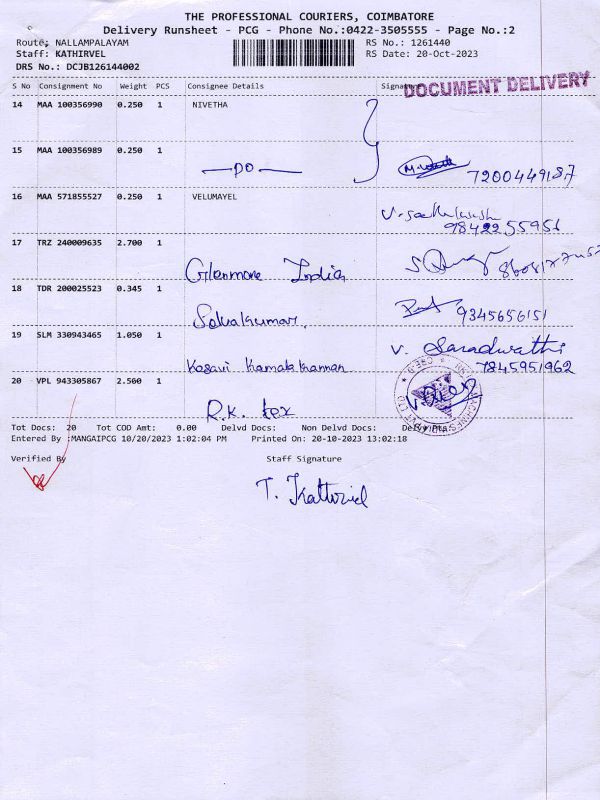 THE PROFESSIONAL COURIERS, COIMBATORE
Delivery Runsheet - PCG - Phone No.:0422-3505555 - Page No.:2
Route: NALLAMPALAYAM RS No.: 1261440
Staff: KATHIRVEL RS Date: 20-Oct-2023
DRS No.: DCJB126144002
DOCUMENT DELIVERY
S No Consignment No Weight PCS Consignee Details Signature
14 MAA 100356990 0.250 1 NIVETHA
15 MAA 100356989 0.250 1
—DO— 7200449187
16 MAA 571855527 0.250 1 VELUMAYEL
9842255956
17 TRZ 240009635 2.700 1
Glenmore India
18 TDR 200025523 0.345 1
9345656151
19 SLM 330943465 1.050 1
V. Saradwathi
7845951962
20 VPL 943305867 2.560 1
R.K. tex
Tot Docs: 20 Tot COD Amt: 0.00 Delvd Docs: Non Delvd Docs:
Entered By :MANGAIPCG 10/20/2023 1:02:04 PM Printed On: 20-10-2023 13:02:18
Verified By Staff Signature
T. Kathirvel